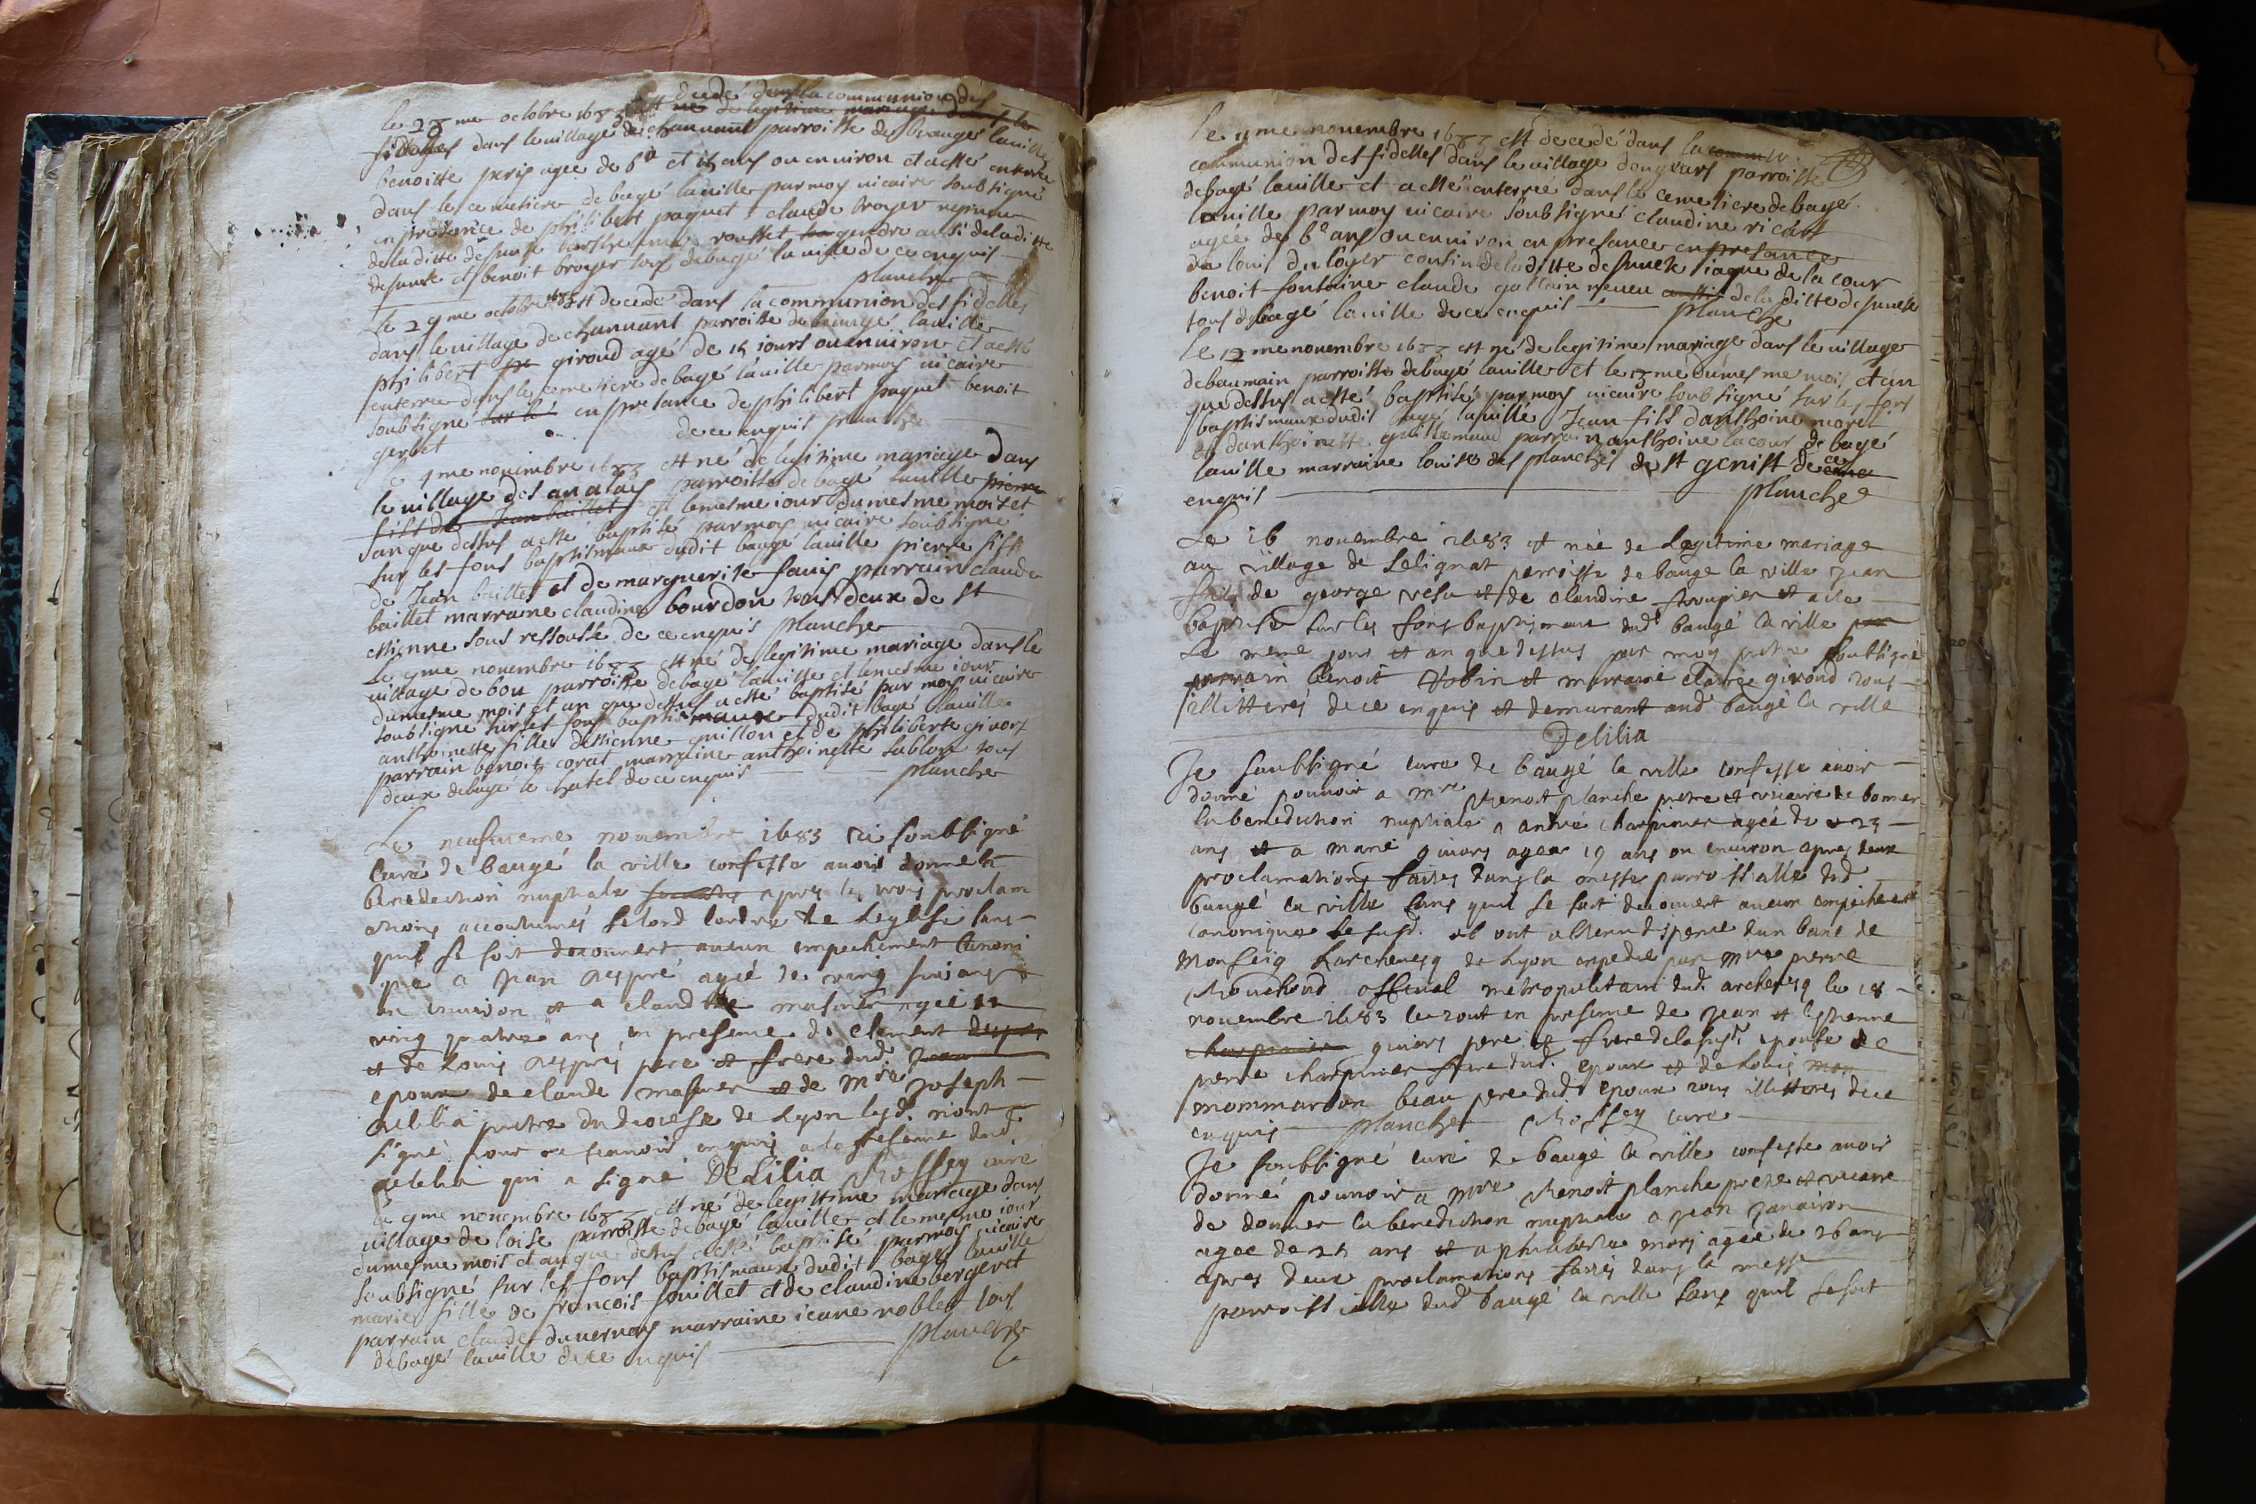 decedé dans la communion des
le 28me octobre 1683 est né de legitime mariage dans le
fidelles dans le village de channant parroisse de baugé la ville
benoitte paris agee de 60 et 15 ans ou environ et a esté enterré
dans le cemetiere de bagé la ville par moy vicaire soubsigné
en presance de philibert paquet claude broyer
de la ditte defunte rousset gendre aussi de la ditte
defunte et benoit broyer tous de bagé la ville de ce enquis
planche
Le 29me octobre 1683 est decedé dans la communion des fidelles
dans le village de channant parroisse de baugé la ville
philibert giroud agé de 15 jours ou environ et a esté
enterré dans le cemetiere de bagé la ville par moy vicaire
soubsigné en presance de philibert paquet benoit
gerbet de ce enquis planche
me novembre 1683 est né de legitime mariage dans
le village des analays parroisse de bagé la ville pierre
fils de Jean baillet et le mesme iour du mesme mois et
an que dessus a esté baptisé par moy vicaire soubsigné
sur les fons baptismaux dudit baugé la ville pierre fils
de Jean baillet et de marguerite parrain claude
baillet marraine claudine bourdon tous deux de st
estienne sous ressousse de ce enquis planche
Le 9me novembre 1683 est né de legitime mariage dans le
village de bou parroisse de bagé la ville et le mesme iour
du mesme mois et an que dessus a esté baptisé par moy vicaire
soubsigné sur les fons baptismaux dudit bagé la ville
anthoinette fille destienne guillon et de philiberte givors
parrain benoit corat marraine anthoinette sublon tous
deux de bagé le chatel de ce enquis planche
Le neufvieme novembre 1683 soubsigné
curé de baugé la ville confesse avoir donné la
benediction nuptiale apres les trois proclam
ations accoutumés selon l'ordre de leglise sans
quil se soit decouvert aucun empechement canoni
que a Jean despré agé de ving ans
ou environ et a claudine masuier agee
ving quatre ans en presence de clement
et de Louis despres pere et frere dud.
epoux de claude masuier et de mre Joseph
delilia prestre du diocese de Lyon lesd. niont
signé pour ne scavoir enquis a la presence dud.
delilia qui a signé DeLilia Rossey curé
Le 9me novembre 1683 est né de legittime mariage dans
village de loise parroisse de bagé la ville et le mesme iour
du mesme mois et an que dessus a esté baptisé par moy vicaire
soubsigné sur les fons baptismaux dudit bagé la ville
marie fille de francois souillet et de claudine bergeret
parrain claude duvernay marraine ieane noblet tous
de bagé la ville de ce enquis planche
Le 11me novembre 1683 est decedé dans la
communion des fidelles dans le village dongeurs parroisse
de bagé la ville et a esté enterrée dans le cemetiere de bagé
la ville par moy vicaire soubsigné claudine
agée de 60 ans ou environ en presance en presance
de louis du loyer cousin de la ditte defuncte iaque de la cour
benoit fontaine claude gallain neveu de la ditte defuncte
tous de bagé la ville de ce enquis planche
Le 12me novembre 1683 est né de legitime mariage dans le village
de beaumain parroisse de bagé la ville et le 13me du mesme mois et an
que dessus a esté baptisé par moy vicaire soubsigné sur les fons
baptismaux dudit bagé la ville Jean fils danthoine morel
et danthoinette guillemaud parrain anthoine lacour de bagé
la ville marraine louise des planches de st genist de ce
enquis planche
Le 16 novembre 1683 est née de Legitime mariage
au village de Lelignat parroisse de bauge la ville Jean
fils de george vesu et de claudine et a ete
baptisé sur les fons baptismaux dud. baugé la ville
Le meme jour et an que dessus par moy prestre soubsigné
parrain benoit Robin et marraine claudee giroud tous
illitterés de ce enquis et demurant aud. baugé la ville
Delilia
Je soubsigné curé de baugé la ville confesse avoir
donné pouvoir a mre Benoist planche prestre et vicaire de donner
la benediction nuptiale a andré charpinier agée de 23
ans et a marie givors agee 19 ans ou environ apres deux
proclamations faites dans la messe parroissialle dud.
baugé la ville sans quil se soit decouvert aucun empechement
canonique et ont obtenu dispense dun banc de
Monseig Larchevesq de Lyon expedié par mre pierre
official metropolitain dud. archevesq le 18
novembre 1683 le tout en presence de Jean et estienne
givors pere et frere de la susd. epouse de
pierre charpinier frere dud. epoux et de Louis
mommardon beau pere dud. epoux tous illitterés de ce
enquis planche Rossey curé
Je soubsigné curé de baugé la ville confesse avoir
donné pouvoir a mre Benoist planche prestre et vicaire
de donner la benediction nuptiale a Jean
agee de 25 ans et a philiberte agée de 26 ans
apres deux proclamations faites dans la messe
parroissialle dud. baugé la ville sans quil se soit